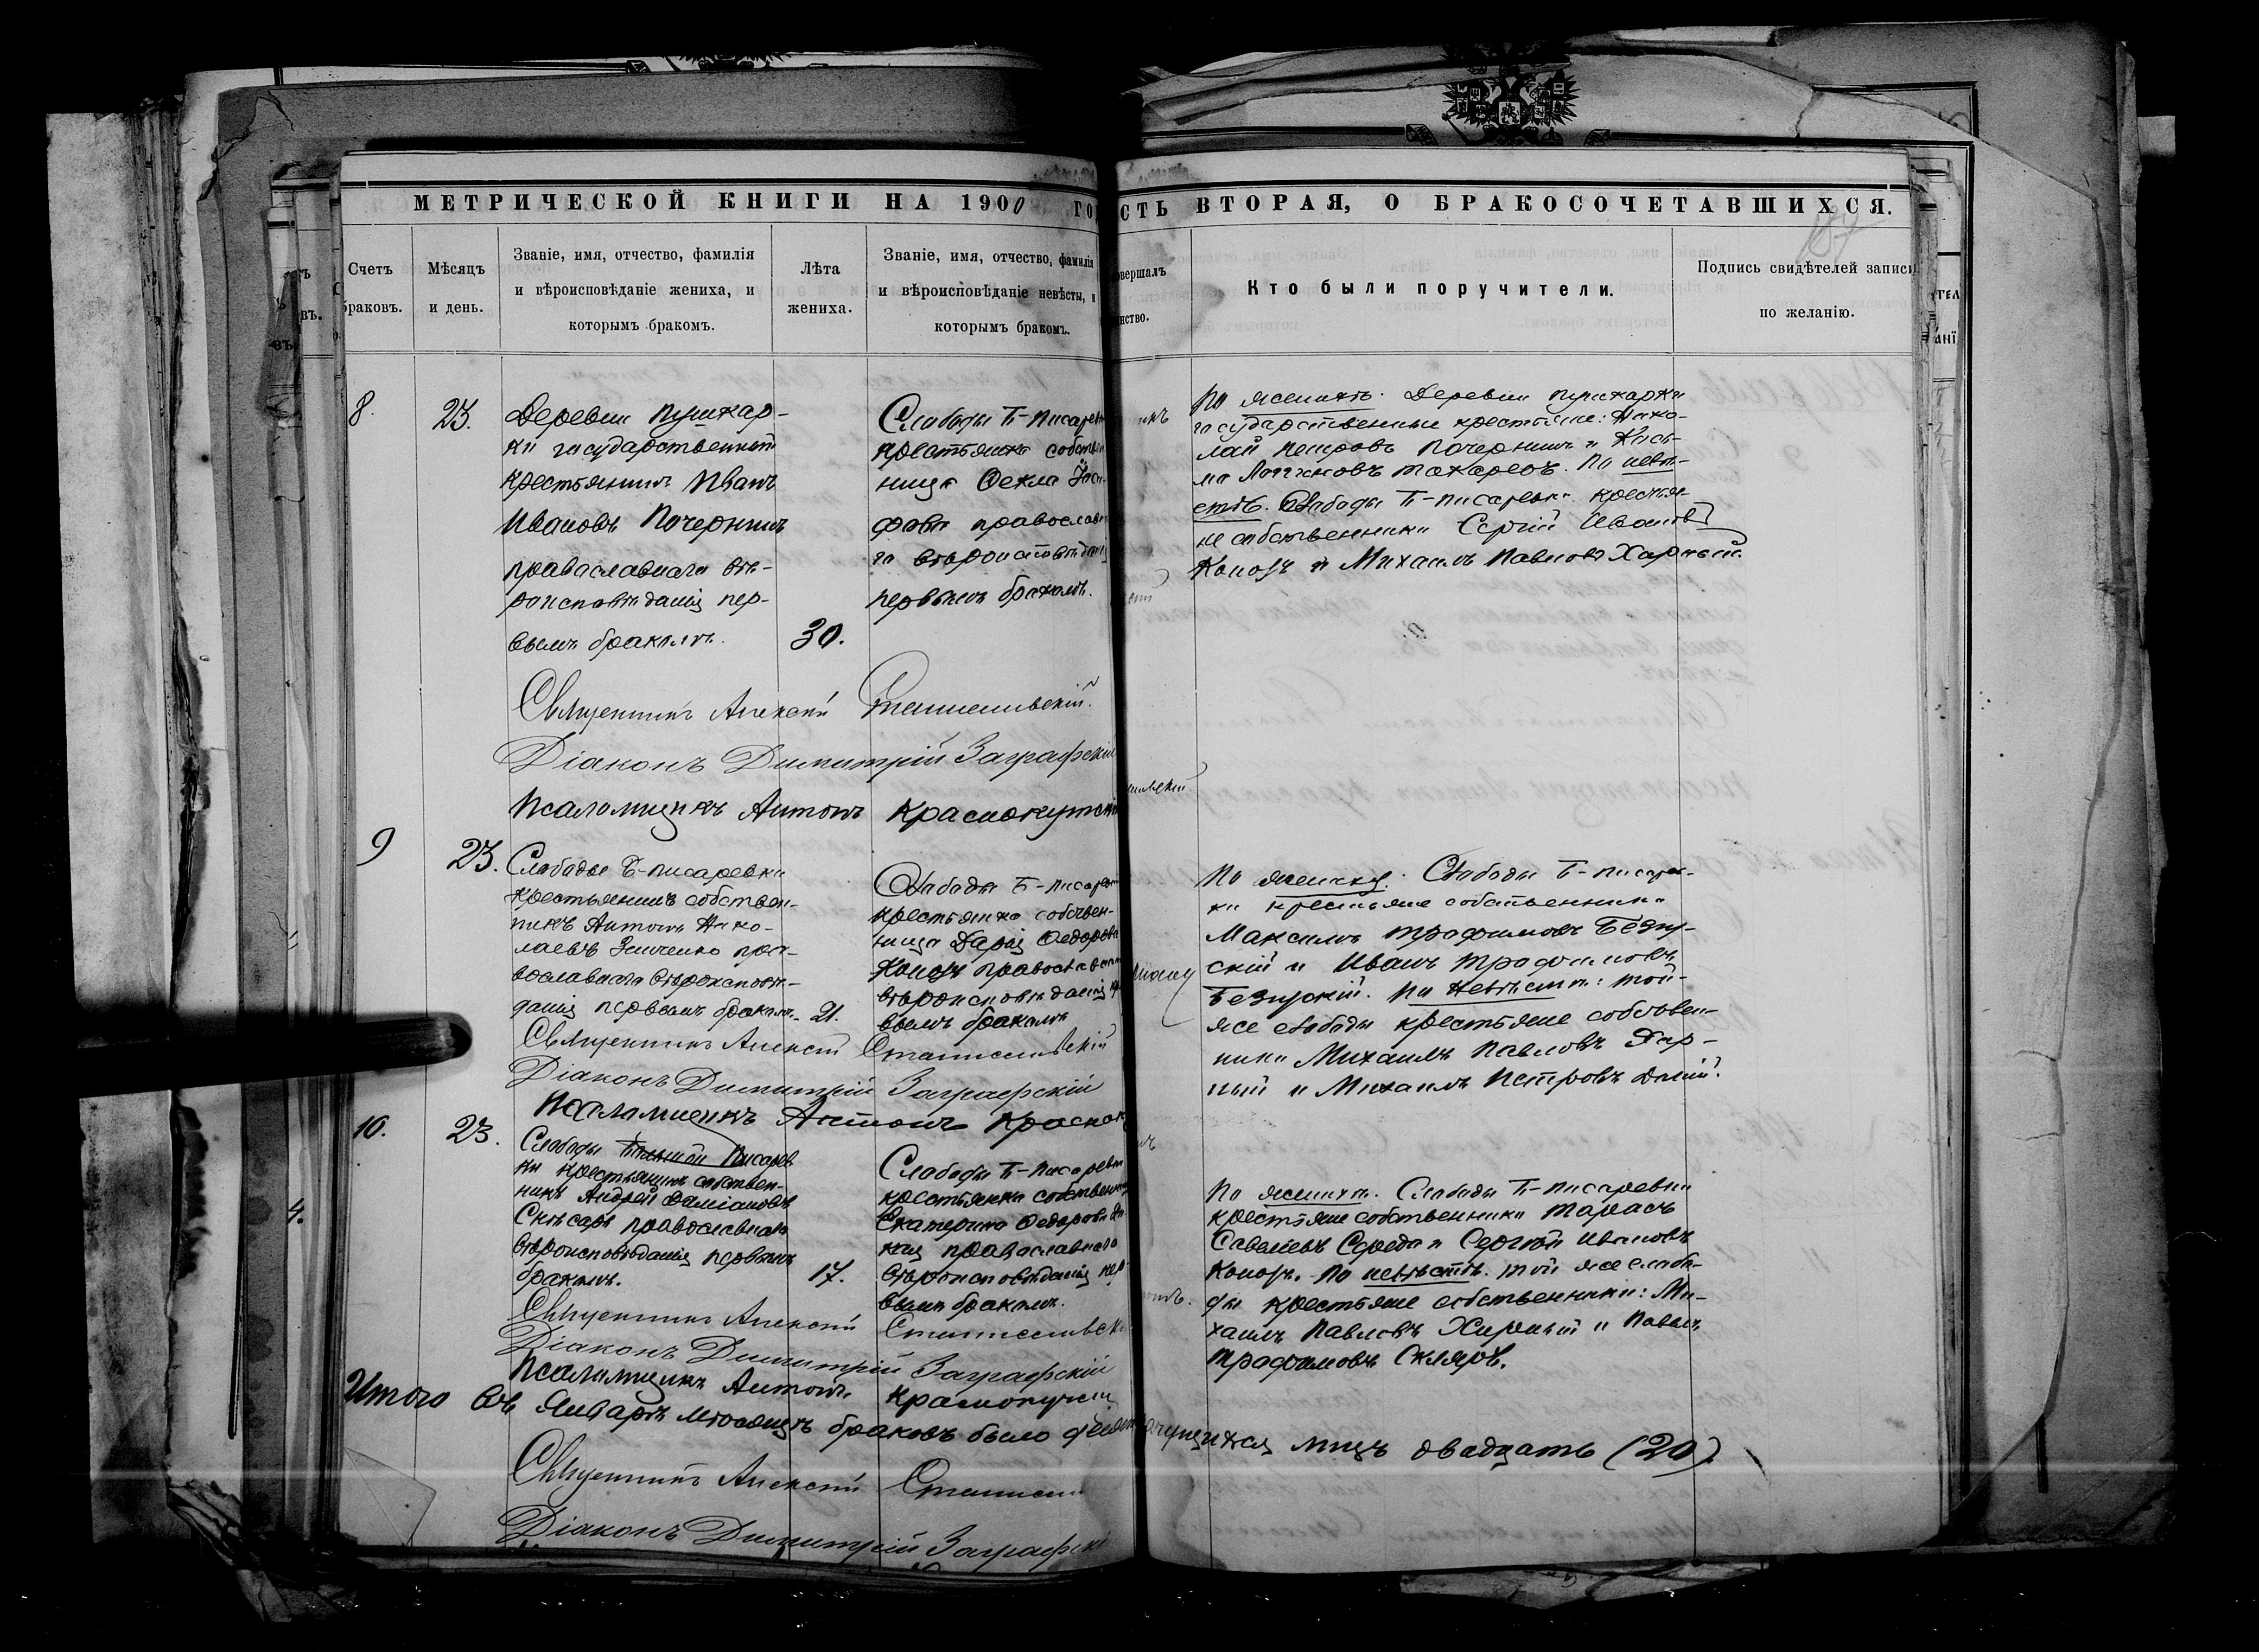 МЕТРИЧЕСКОЙ КНИГИ НА 1900 ГО
СТЬ ВТОРАЯ, О БРАКОСОЧЕТАВШИХСЯ.
Счетъ
браковъ.
Мѣсяцъ
и день.
Званіе, имя, отчество, фамилія
и вѣроисповѣданіе жениха, и
которымъ бракомъ.
Лѣта
жениха.
Званіе, имя, отчество, фамилія
и вѣроисповѣданіе невѣсты, и
которымъ бракомъ.
овершалъ
нство.
Кто были поручители.
Подпись свидѣтелей записи
по желанію.
8.
23.
Деревни Пушкар-
ки государственный
крестьянинъ Иванъ
Ивановъ Почернинъ
православнаго вѣ-
роисповѣданія пер-
вымъ бракомъ.
30.
Слободы Б-Писаревк
крестьянка собствен
ница Фекла
православн
го вѣроисповѣдані
первымъ бракомъ.
По женихѣ: Деревни Пушкарки
государственные крестьяне: Нико-
лай Петровъ Почернинъ и Кось-
ма Токаревъ. По невѣ-
стѣ. Слободы Б-Писаревки крестья-
не собственники Сергій Ивановъ
Конозъ и Михаилъ Павловъ Харный.
Священникъ Алексѣй Станиславскій.
Діаконъ Димитрій Заграфскій
Псаломщикъ Антонъ Краснокутскій
9
23.
Слободы Б-Писаревки
крестьянинъ собствен-
никъ Антонъ Нико-
лаевъ Зинченко пра-
вославнаго вѣроисповѣ-
данія первымъ бракомъ.
21.
Слободы Б-Писарев
крестьянка собствен-
ница Дарія Федорова
Конозъ православн
вѣроисповѣданія пер
вымъ бракомъ
По женихѣ: Слободы Б-Писарев-
ки крестьяне собственники
Максимъ Трофимовъ Безру-
скій и Иванъ Трофимовъ
По невѣстѣ: той-
же слободы крестьяне собствен-
ники Михаилъ Павловъ Хар-
ный и Михаилъ Петровъ
Священникъ Алексѣй Станиславскій
Діаконъ Димитрій Заграфскій
Псаломщикъ Антонъ Краснок
10.
23.
Слободы Большой Писарев
ки крестьянинъ собствен-
никъ Андрей Даміановъ
Слѣсарь православнаго
вѣроисповѣданія первымъ
бракомъ.
17.
Слободы Б-Писаревки
крестьянка собственница
Екатерина Федорова
православнаго
вѣроисповѣданія пер-
вымъ бракомъ.
По женихѣ. Слободы Б-Писаревки
крестьяне собственники Тарасъ
Савельевъ Середа и Сергѣй Ивановъ
Конозъ. По невѣстѣ. той же слобо-
ды крестьяне собственники: Ми-
хаилъ Павловъ Харный и Павелъ
Трофимовъ Скляръ.
Священникъ Алексѣй Станиславск
Діаконъ Димитрій Заграфскій
Псаломщикъ Антонъ Краснокутск
Итого въ Январѣ мѣсяцѣ браковъ было лицъ двадцать (20).
Священникъ Алексѣй Станисла
Діаконъ Димитрій Заграфскі
4.